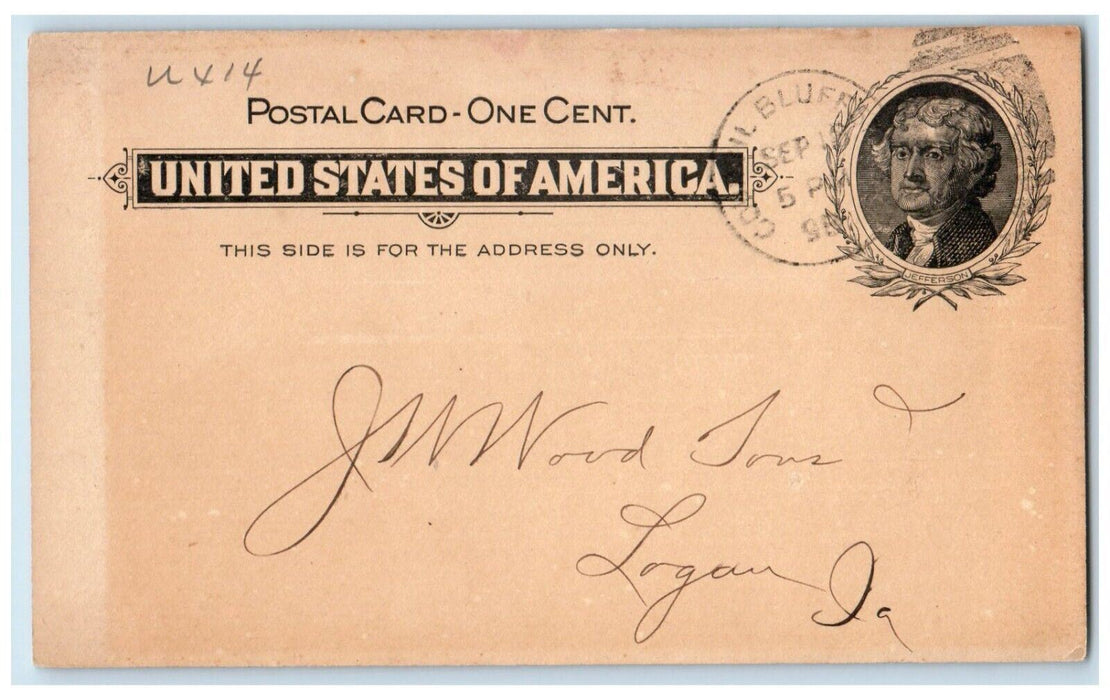 UX14
POSTAL CARD - ONE CENT.
UNITED STATES OF AMERICA.
THIS SIDE IS FOR THE ADDRESS ONLY.
BLUFF
SEP
5 P
98
JEFFERSON
J W Wood Sons
Logan Ia